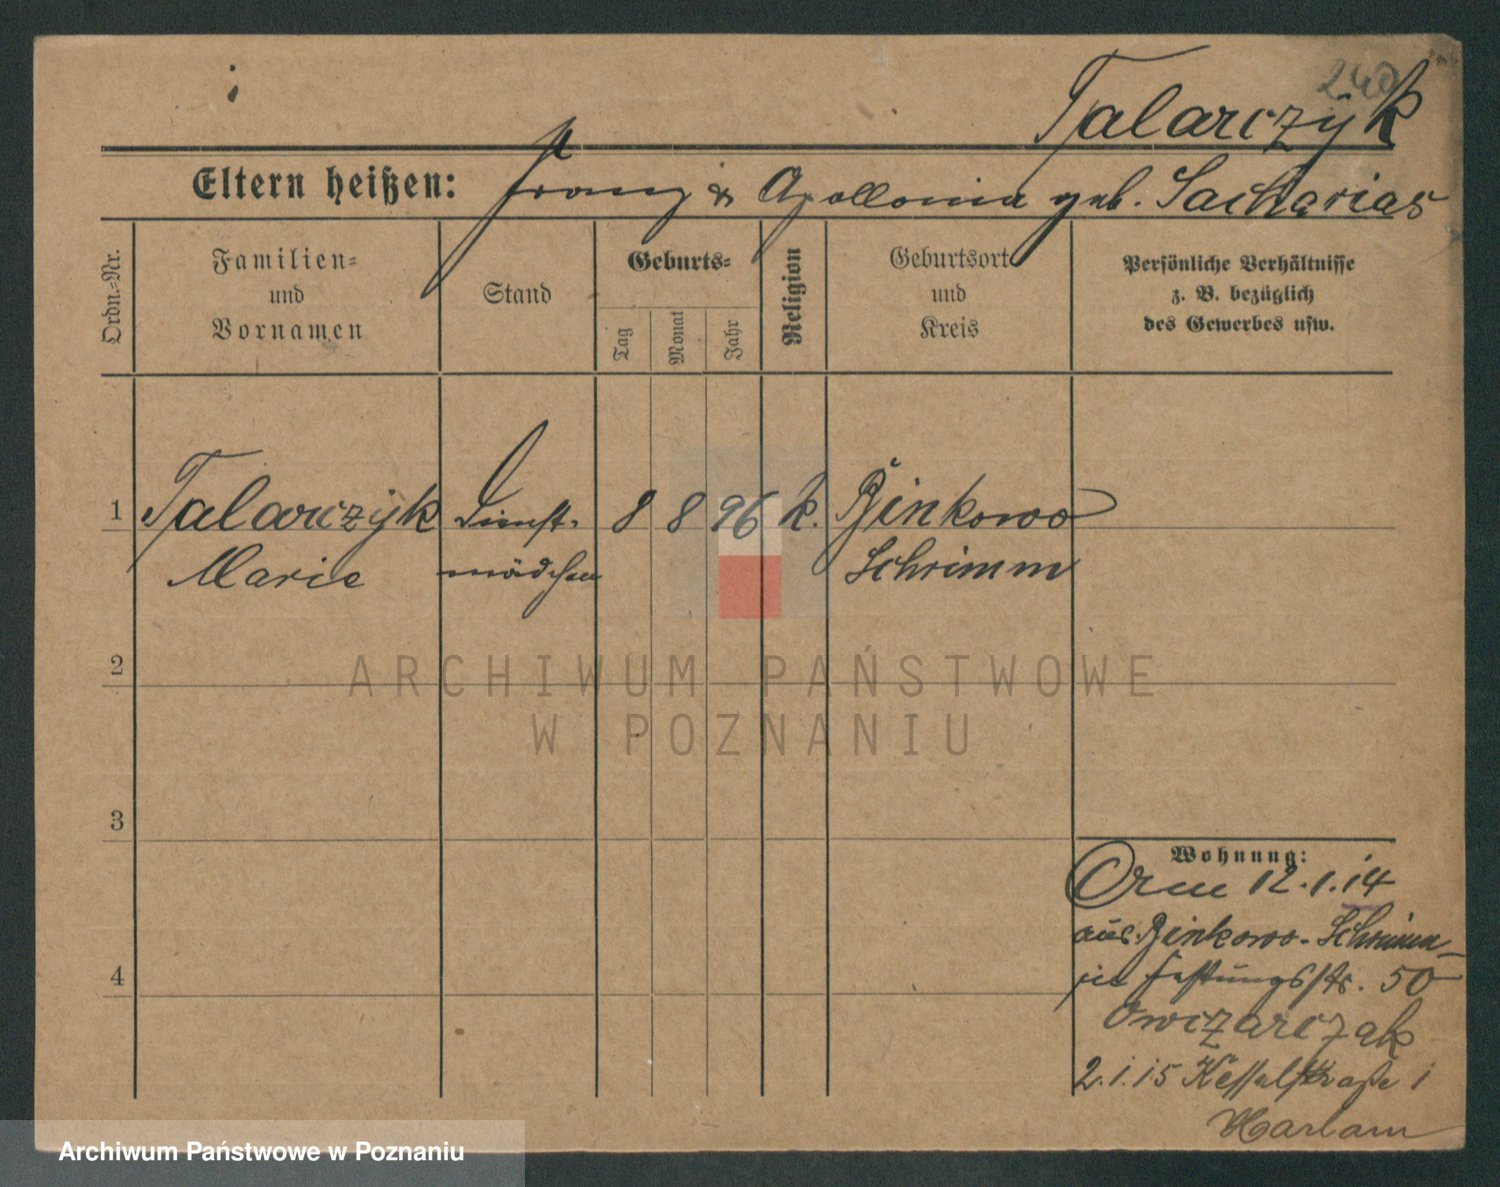 240
Talarczyk
Eltern heißen: Franz & Apollonia geb. Sacharias
Ordn.-Nr.
Familien-
und
Vornamen
Stand
Geburts-
Tag
Monat
Jahr
Religion
Geburtsort
und
Kreis
Persönliche Verhältnisse
z. B. bezüglich
des Gewerbes usw.
1 Talarczyk Dienst- 8 8 96 k. Binkowo
Marie mädchen Schrimm
2
3
4
Wohnung:
12.1.14
aus Binkowo-Schrimm
in Festungsstr. 50
Owczarczak
2.1.15 Kesselstraße 1
Marlam
ARCHIWUM PAŃSTWOWE
W POZNANIU
Archiwum Państwowe w Poznaniu